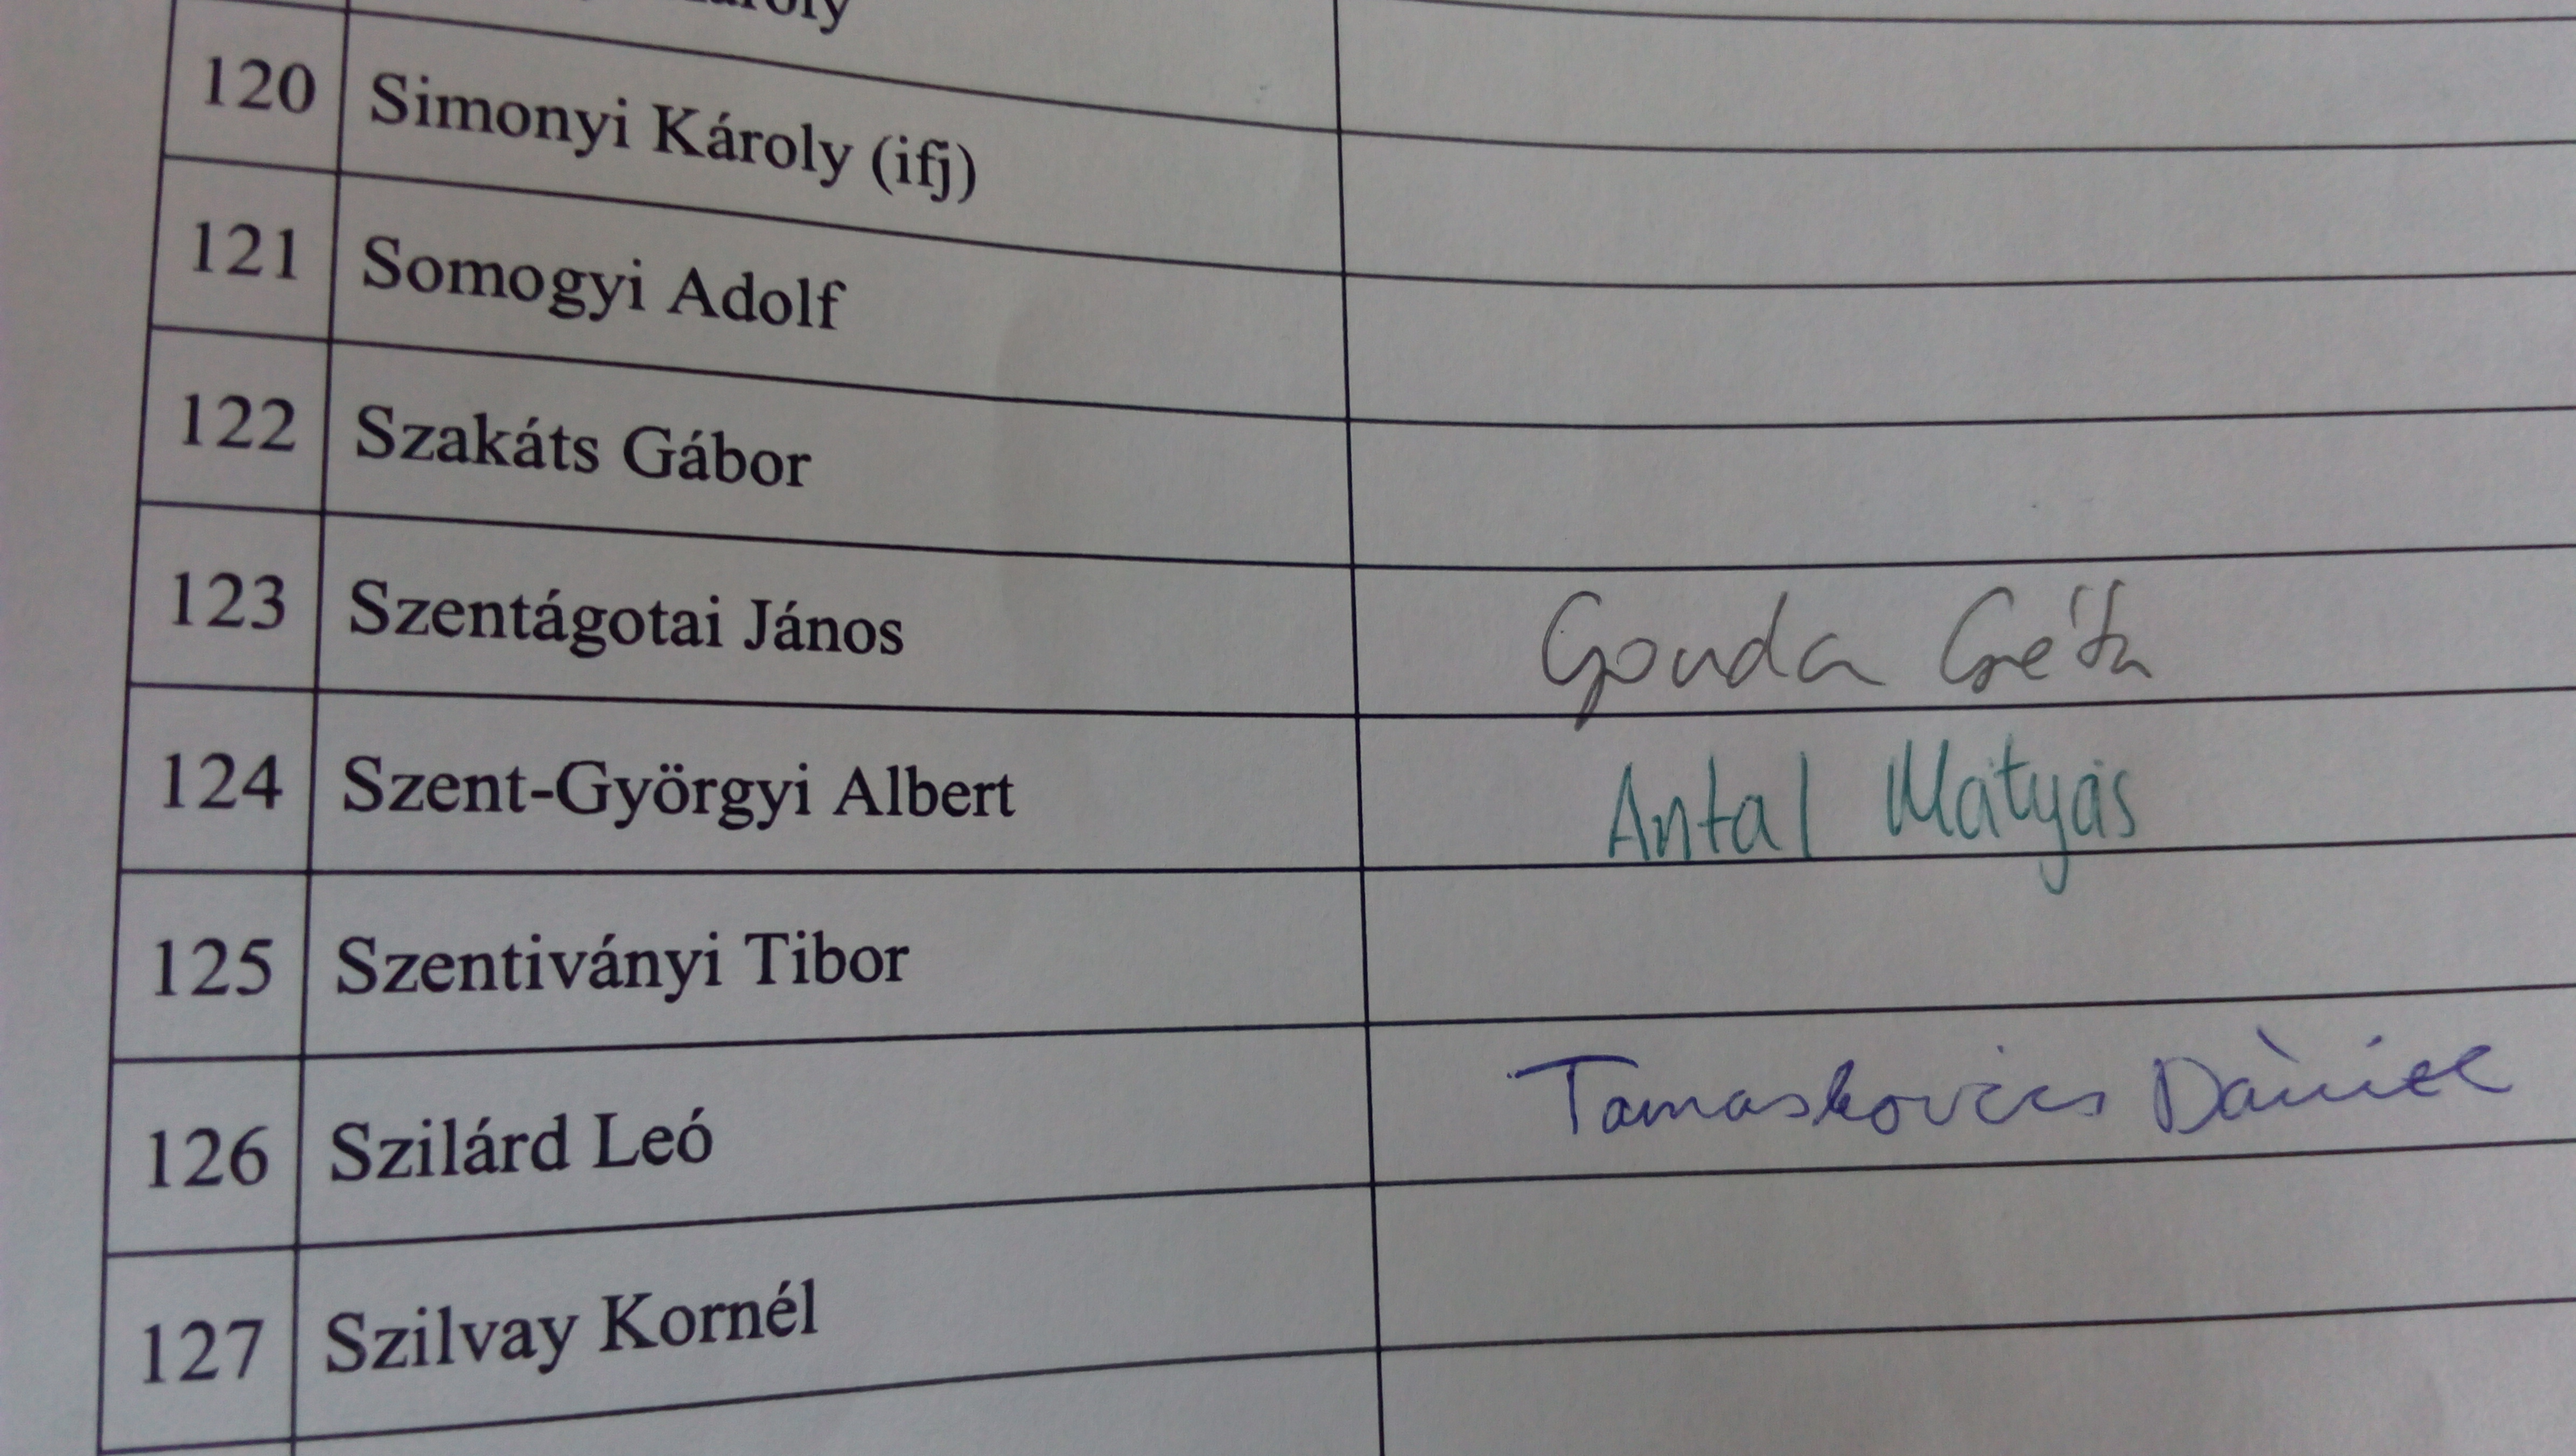 Károly
120 Simonyi Károly (ifj)
121 Somogyi Adolf
122 Szakáts Gábor
123 Szentágotai János Gonda Gréta
124 Szent-Györgyi Albert Antal Mátyás
125 Szentiványi Tibor
126 Szilárd Leó Tamaskovics Dániel
127 Szilvay Kornél